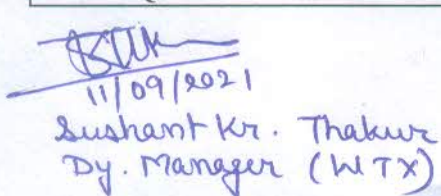 11/09/2021
Sushant Kr. Thakur
Dy. Manager (WTX)